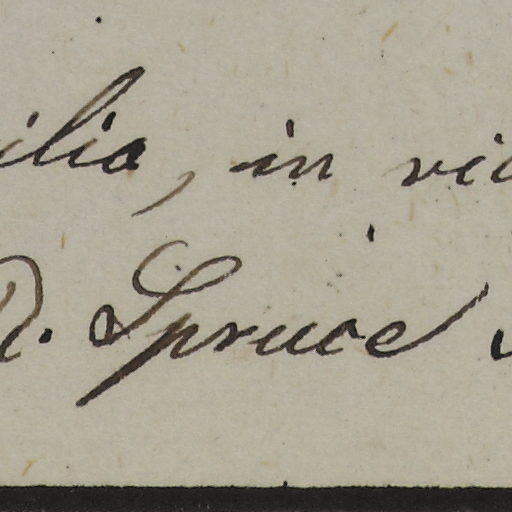 ilia, in vic
R. Spruce